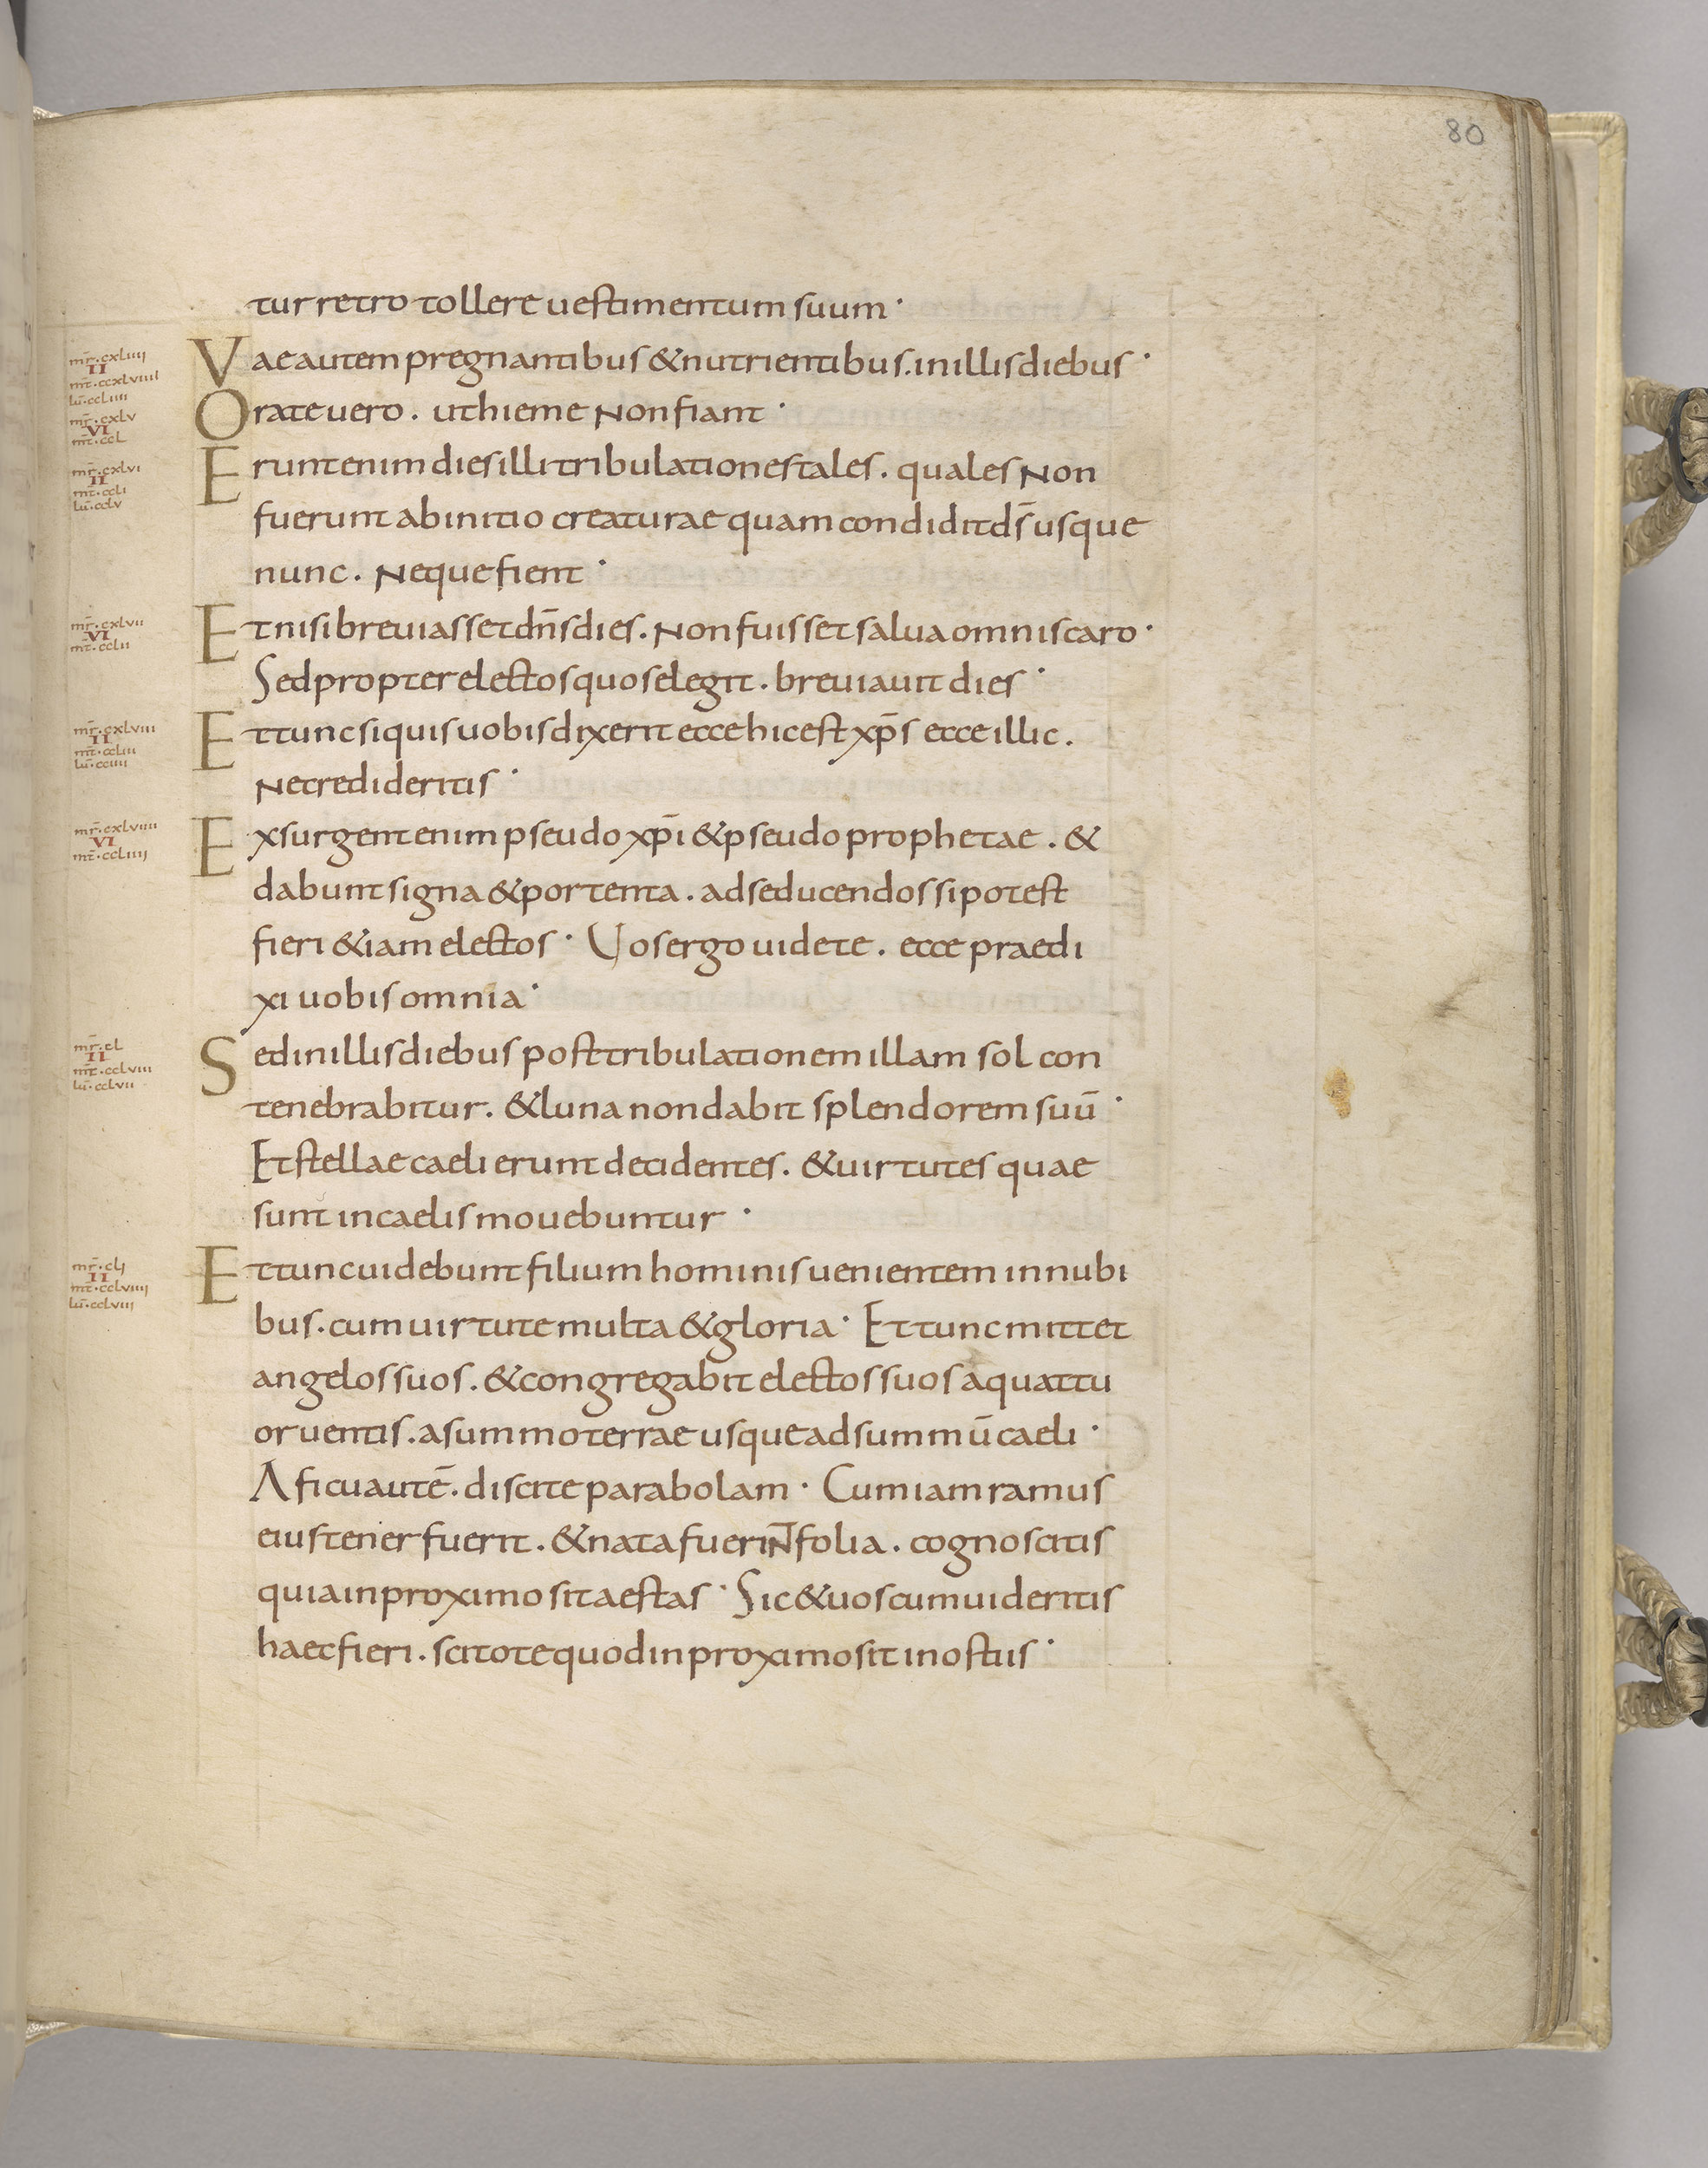 80
tur retro tollere uestimentum suum ·
mr̄ · cxliiii
II
mt̄ · ccxlviiii
lū · ccliiii
Vae autem pregnantibus & nutrientibus . in illis diebus ·
mr̄ · cxlv
VI
mt̄ · ccl
Orate uero . ut hieme Non fiant ·
mr̄ · cxlvi
II
mt̄ · ccli
lū · cclv
Erunt enim dies illi tribulationes tales . quales Non
fuerunt ab initio creaturae quam condidit ds̄ usque
nunc . Neque fient ·
mr̄ · cxlvii
VI
mt̄ · cclii
Et nisi breuiasset dn̄s dies . Non fuisset salua omnis caro ·
Sed propter electos quos elegit . breuiauit dies ·
mr̄ · cxlviii
II
mt̄ · ccliii
lū · cciiii
Et tunc si quis uobis dixerit ecce hic est xp̄s ecce illic .
Ne credideritis ·
mr̄ · cxlviiii
VI
mt̄ · ccliiii
Exsurgent enim pseudo xp̄i & pseudo prophetae . &
dabunt signa & portenta . ad seducendos si potest
fieri &iam electos · Vos ergo uidete . ecce praedi
xi uobis omnia ·
mr̄ · cl
II
mt̄ · cclviii
lū · cclvii
Sed in illis diebus post tribulationem illam sol con
tenebrabitur . & luna non dabit splendorem suū ·
Et stellae caeli erunt decidentes . & uirtutes quae
sunt in caelis mouebuntur ·
mr̄ · clj
II
mt̄ · cclviiij
lū · cclviij
Et tunc uidebunt filium hominis uenientem in nubi
bus . cum uirtute multa & gloria · Et tunc mittet
angelos suos . & congregabit electos suos a quattu
or uentis . a summo terrae usque ad summū caeli ·
A ficu autē . discite parabolam · Cum iam ramus
eius tener fuerit . & nata fueriNT folia . cognoscitis
quia in proximo sit aestas · Sic & uos cum uideritis
haec fieri . scitote quod in proximo sit in ostiis ·